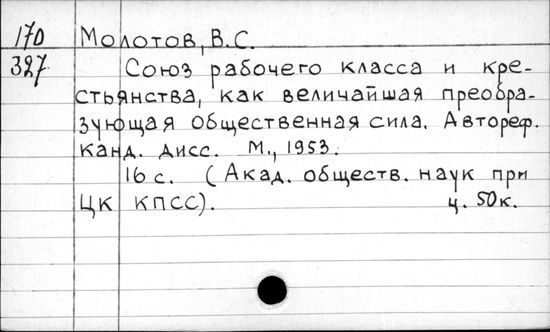 170 Молотов, В.С.
327 Союз рабочего класса и кре-
стьянства, как величайшая преобра-
зующая общественная сила. Автореф.
канд. дисс. М., 1953.
16 с. (Акад. обществ. наук при
ЦК КПСС). ц. 50к.